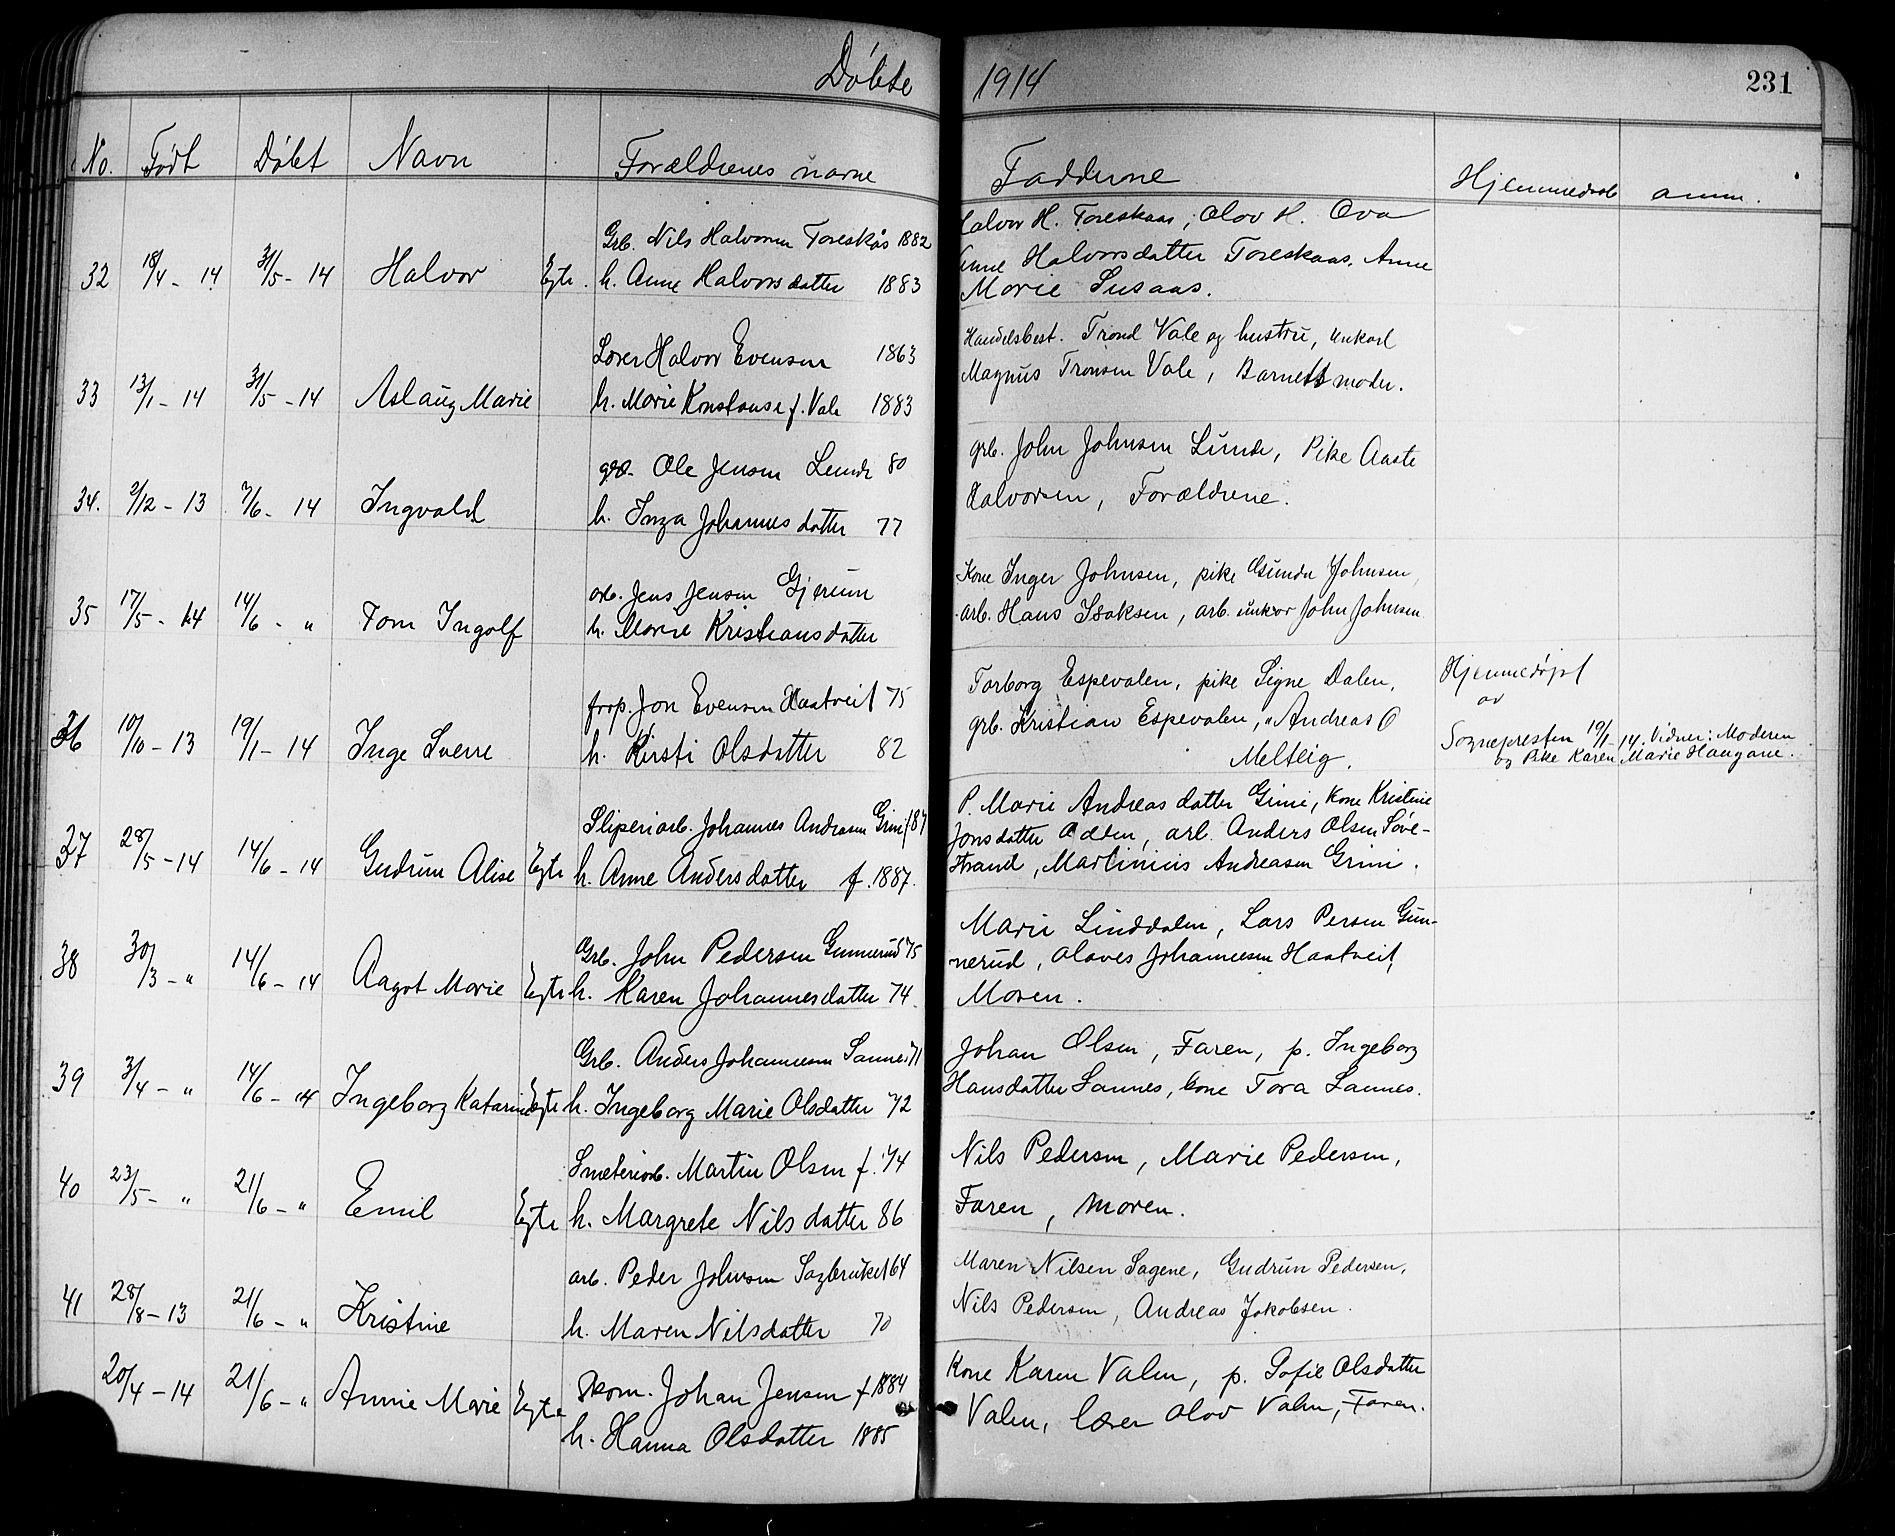 Døbte 1914 231
No. Født Døbt Navn Forældrenes navne Fadderne Hjemmedøb anm.
Grb. Nils Halvorsen Toreskås 1882
32 18/4 - 14 31/5 - 14 Halvor Egte h. Anne Halvorsdatter 1883
Halvor H. Toreskaas, Olov H. Ova
Anne Halvorsdatter Toreskaas, Anne
Marie Susaas.
Lærer Halvor Evensen 1863
33 13/1 - 14 31/5 - 14 Aslaug Marie h. Marie Konstanse f. Vale 1883
Handelsbest. Trond Vale og hustru, unkarl
Magnus Tronsen Vale, Barnets moder.
Ole Jensen Lunde 80
34. 2/12 - 13 7/6 - 14 Ingvald h. Inga Johannesdatter 77
grb. John Johnsen Lunde, Pike Aaste
Halvorsen, Forældrene.
arb. Jens Jensen Gjerum
35 17/5 - 14 14/6 - " Tom Ingolf h. Marie Kristiansdatter
Kone Inger Johnsen, pike Gunda Johnsen,
arb. Hans Isaksen, arb. unkar John Johnsen
prop. Jon Evensen Haatveit 75
36 10/10 - 13 19/1 - 14 Inge Sverre h. Kirsti Olsdatter 82
Torborg Espevalen, pike Signe Dalen,
grb. Kristian Espevalen, " Andreas O
Melteig.
Hjemmedøpt
av
Sognepresten 19/1 - 14. Vidner: Moderen
og Pike Karen Marie Haugane.
Sliperiarb. Johannes Andreasen Grini
37 28/5 - 14 14/6 - 14 Gudrun Alise Egte h. Anne Andersdatter f. 1887.
P. Marie Andreasdatter Grini, Kone Kristine
Jonsdatter Odden, arb. Anders Olsen Søve-
strand, Martinius Andreasen Grini.
Grb. John Pedersen Gunnerud 75
38 30/3 - " 14/6 - 14 Aagot Marie Egte h. Karen Johannesdatter 74.
Marie Linddalen, Lars Persen Gun-
nerud, Olaves Johannesen Haatveit,
Moren.
Grb. Anders Johannesen Sannes 71
39 3/4 - " 14/6 - 14 Ingeborg Katarine Egte h. Ingeborg Marie Olsdatter 72
Johan Olsen, Faren, p. Ingeborg
Hansdatter Sannes, kone Tora Sannes.
Smelteriarb. Martin Olsen f. 74
40 23/5 - " 21/6 - " Emil Egte h. Margrete Nilsdatter 86
Nils Pedersen, Marie Pedersen,
Faren, Moren.
arb. Peder Johnsen Sagbruket 64
41 28/8 - 13 21/6 - " Kristine h. Maren Nilsdatter 70
Maren Nilsen Sagene, Gudrun Pedersen,
Nils Pedersen, Andreas Jakobsen.
Skom. Johan Jensen f 1884
20/4 - 14 21/6 - " Annie Marie Egte h. Hanna Olsdatter 1885
Kone Karen Valen, p. Sofie Olsdatter
Valen, lærer Olav Valen, Faren.